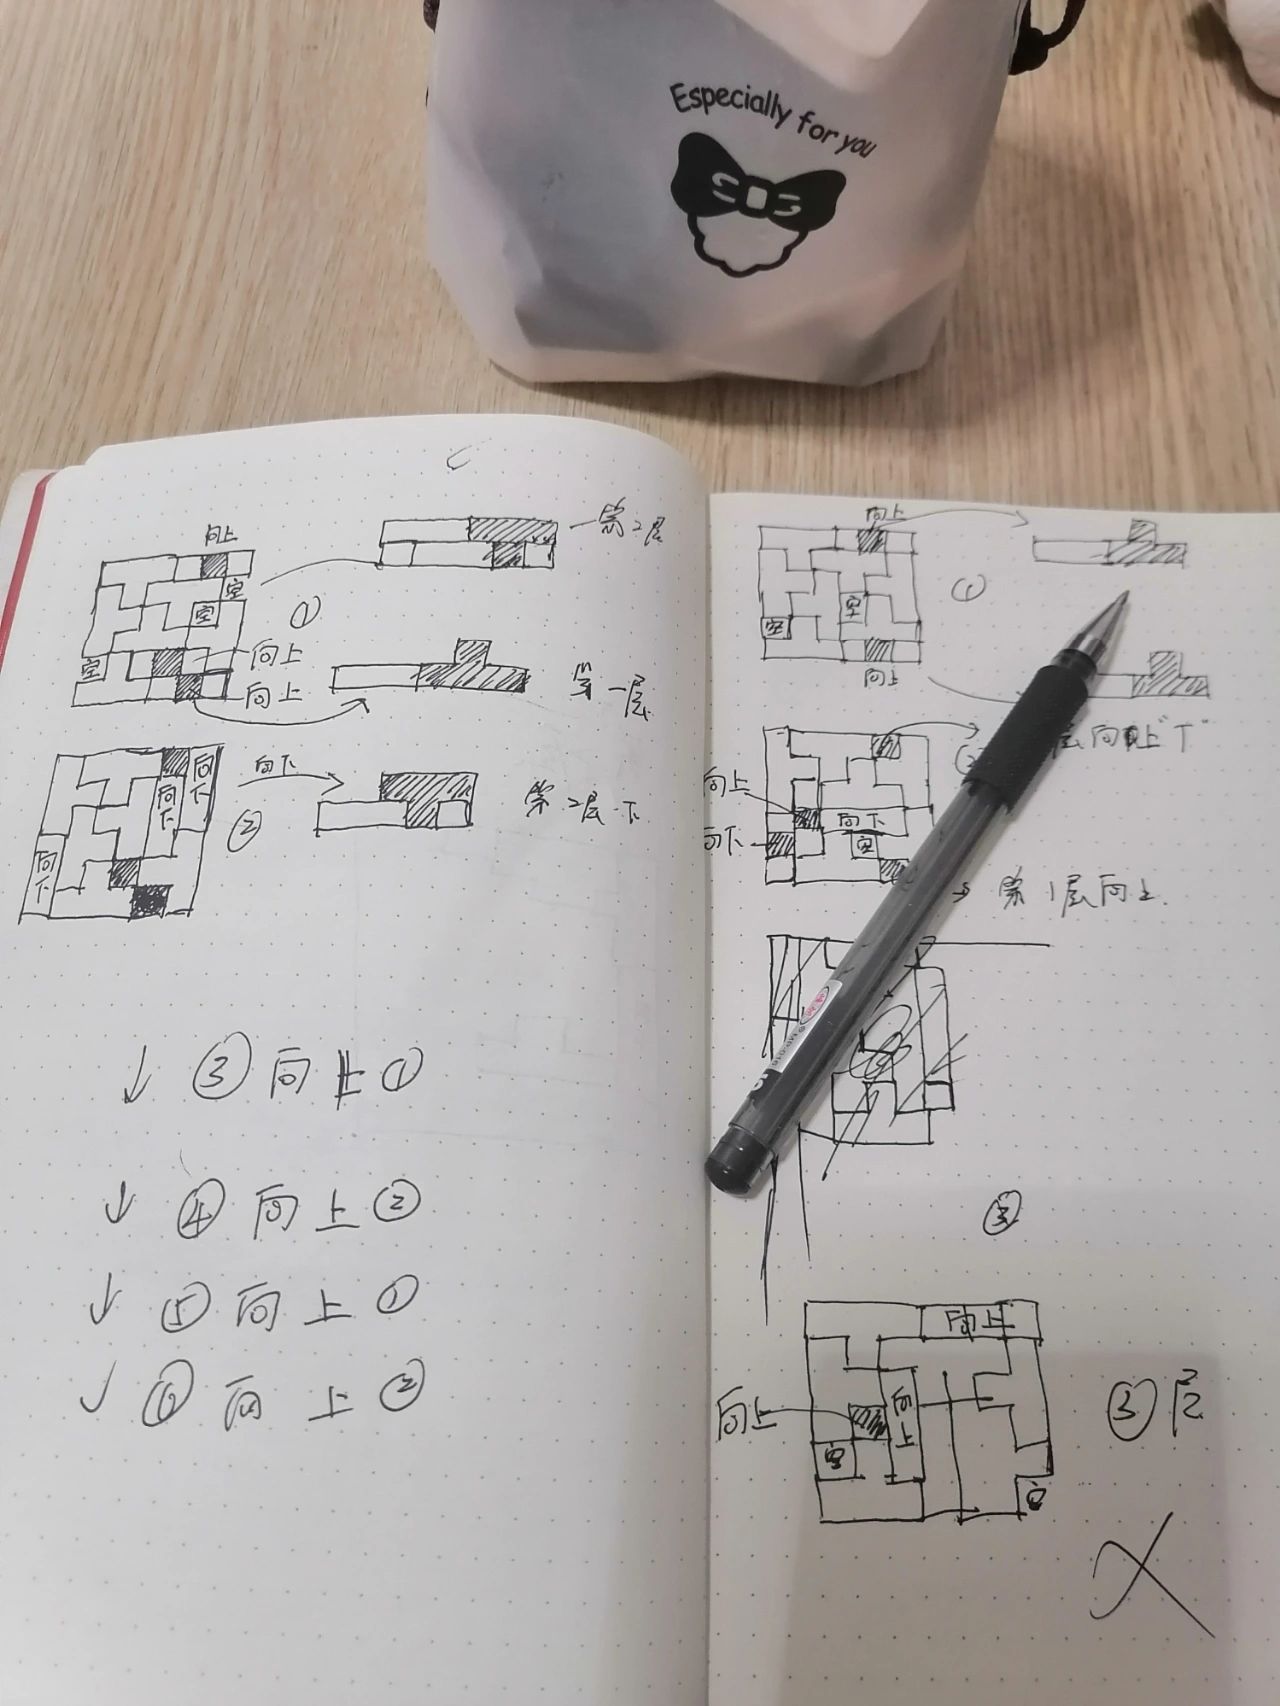 Especially for you
向上
第2层
空
空
①
空
向上
向上
第一层
向下
向下
向下
②
第2层下
向下
↓ ③ 向上 ①
↓ ④ 向上 ②
↓ ⑤ 向上 ①
↓ ⑥ 向上 ②
向上
空
空
①
向上
层向上"T"
向上
向下
向下
空
→ 第1层向上
③
向上
向上
向上
③层
空
空